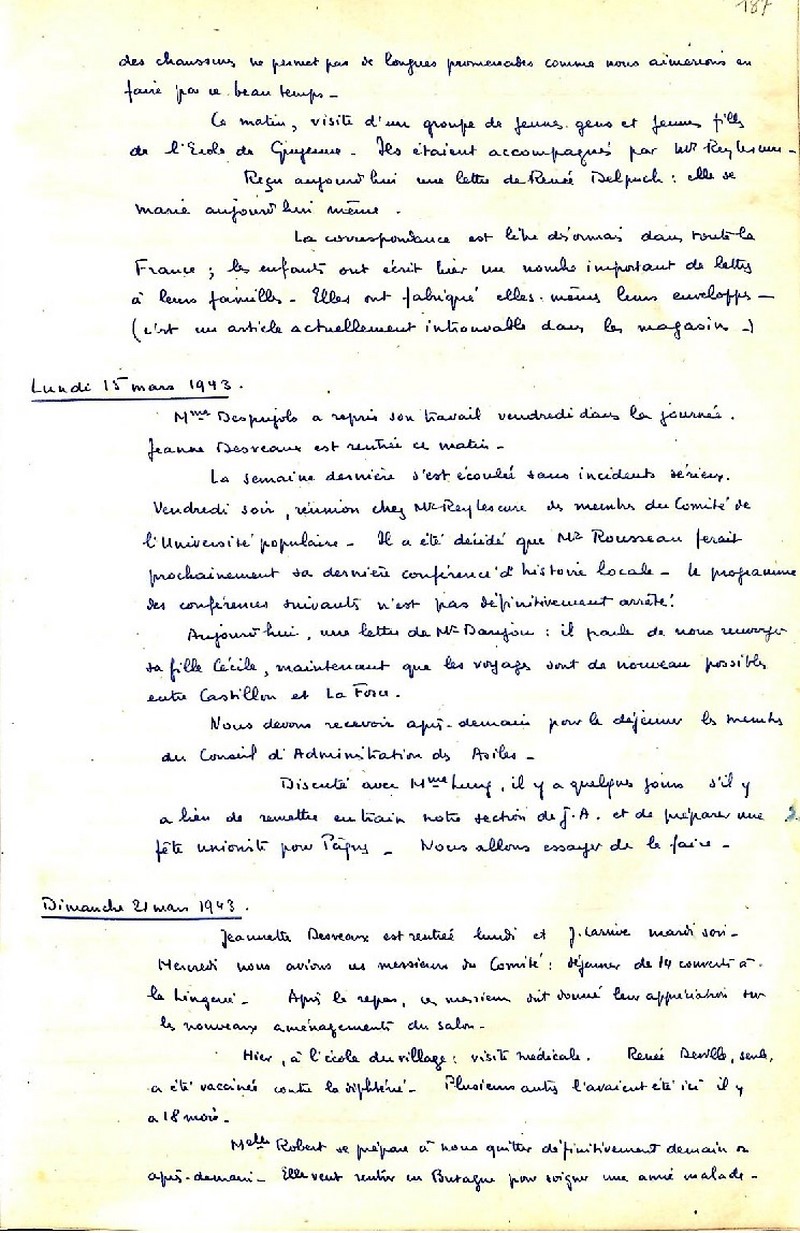 187
des chaussures ne permet pas de longues promenades comme nous aimerions en
faire par ce beau temps -
Ce matin, visite d'un groupe de jeunes gens et jeunes filles
de l'Ecole de Guyenne - Ils étaient accompagnés par Mr Reylescure -
Reçu aujourd'hui une lettre de Renée Delpech : elle se
marie aujourd'hui même .
La correspondance est libre désormais dans toute la
France ; les enfants ont écrit hier un nombre important de lettres
à leurs familles - Elles ont fabriqué elles-mêmes leurs enveloppes -
(c'est un article actuellement introuvable dans les magasins -)
Lundi 15 mars 1943 .
Mme Despujols a repris son travail vendredi dans la journée .
Jeanne Desveaux est rentrée ce matin -
La semaine dernière s'est écoulée sans incidents sérieux.
Vendredi soir, réunion chez Mr Reylescure des membres du Comité de
l'Université populaire - Il a été décidé que Mr Rousseau ferait
prochainement sa dernière conférence d'histoire locale - Le programme
des conférences suivantes n'est pas définitivement arrêté.
Aujourd'hui, une lettre de Mr : il parle de nous renvoyer
sa fille Cécile, maintenant que les voyages sont de nouveau possibles
entre Castillon et La Force .
Nous devons recevoir après-demain pour le déjeuner les membres
du Conseil d'Administration des Asiles -
Discuté avec Mme , il y a quelques jours s'il y
a lieu de remettre en train notre section de J.A. et de préparer une
fête unioniste pour Pâques - Nous allons essayer de le faire -
Dimanche 21 mars 1943 .
Jeannette Desveaux est rentrée lundi et J. Larrive mardi soir -
Mercredi nous avions ces messieurs du Comité : déjeuner de 14 couverts à
la Lingerie - Après le repas, ces messieurs ont donné leur appréciation sur
les nouveaux aménagements du salon -
Hier, à l'école du village : visite médicale . Renée , seule,
a été vaccinée contre la diphtérie - Plusieurs autres l'avaient été ici il y
a 18 mois -
Melle Robert se prépare à nous quitter définitivement demain ou
après-demain - Elle veut rentrer en Bretagne pour soigner une amie malade -